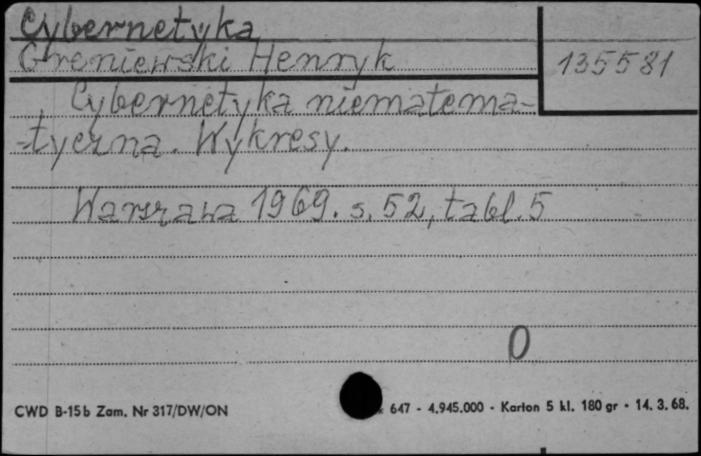 Cybernetyka
Greniewski Henryk
135581
Cybernetyka niematema-
-tyczna. Wykresy.
Warszawa 1969. s. 52, tabl. 5
0
CWD B-15b Zam. Nr 317/DW/ON
647 - 4.945.000 - Karton 5 kl. 180 gr - 14. 3. 68.